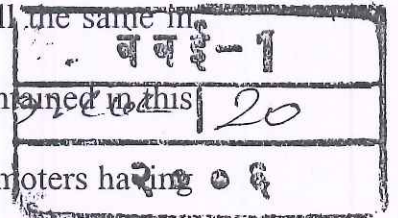 ll the same in
बबई-1
ntained in this | 20
moters having
२००६